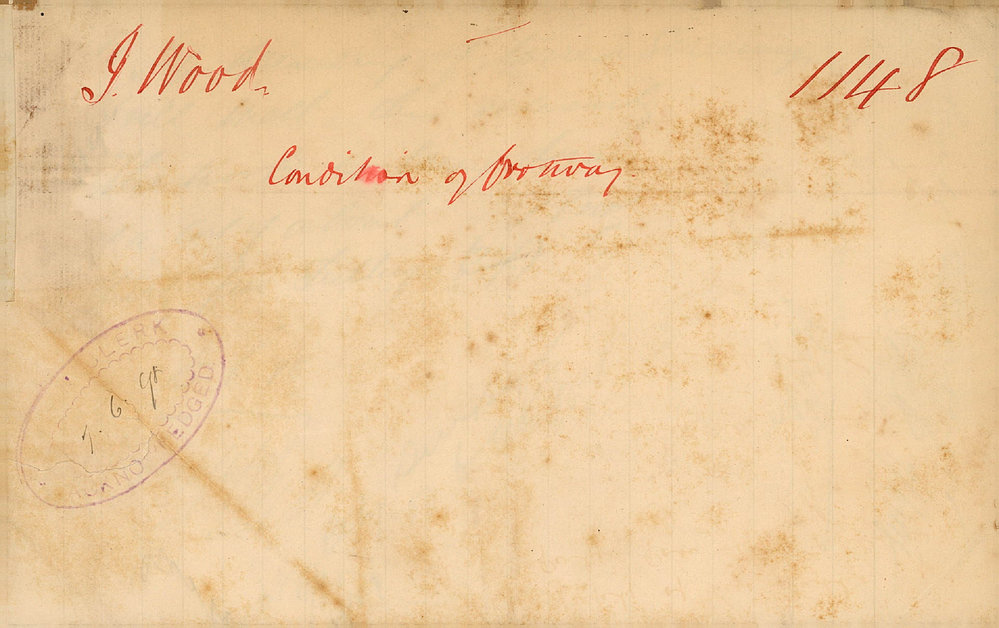 J. Wood. 1148
Condition of footway
CLERK
7. 6. 98
ACKNOWLEDGED